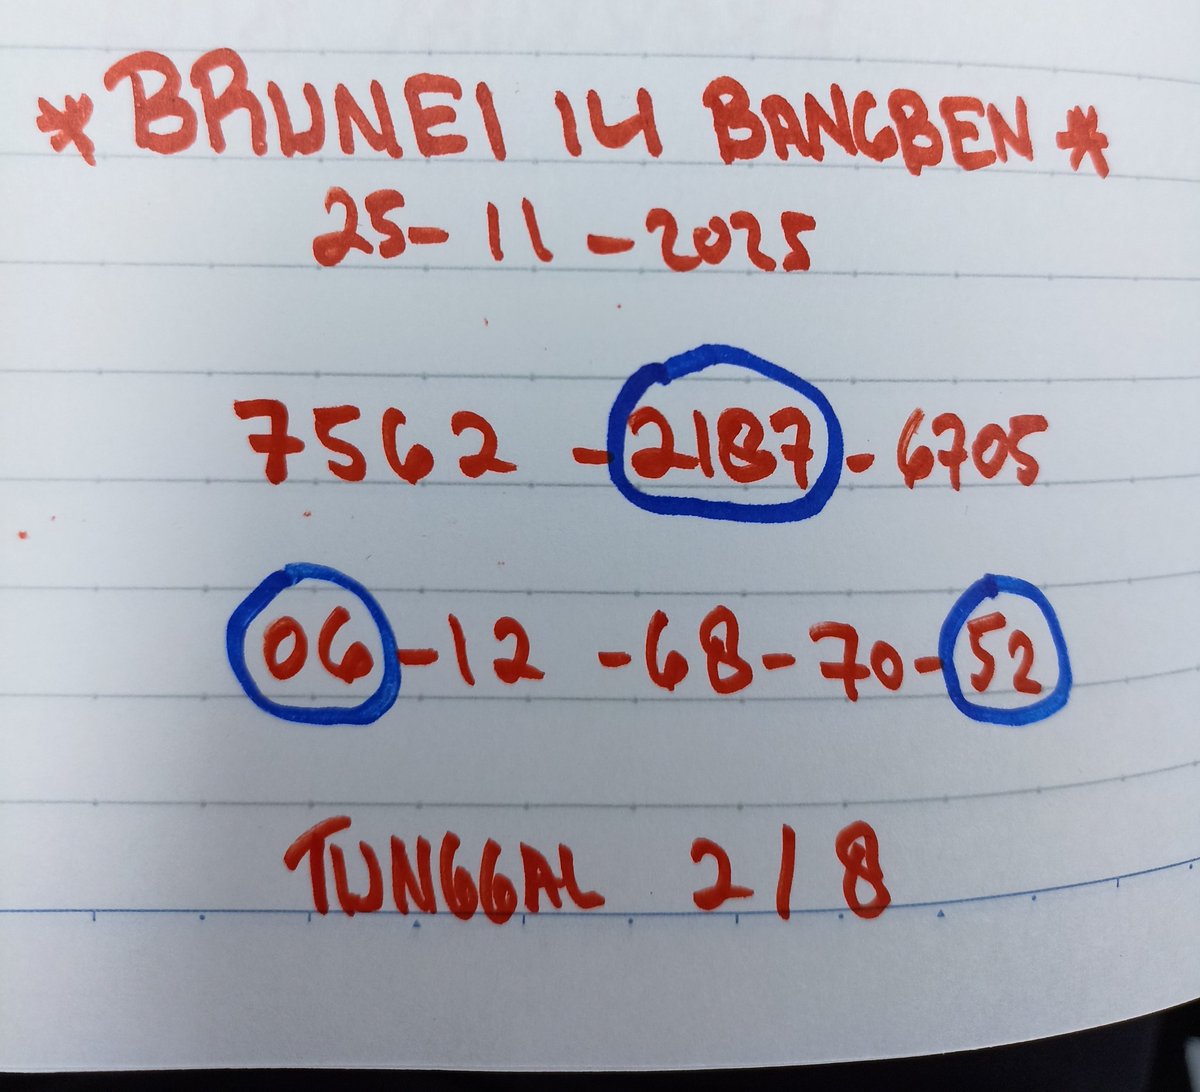 * BRUNEI 14 BANGBEN *
25-11-2025
7562 - 2187 - 6705
06 - 12 - 68 - 70 - 52
TUNGGAL 2 / 8